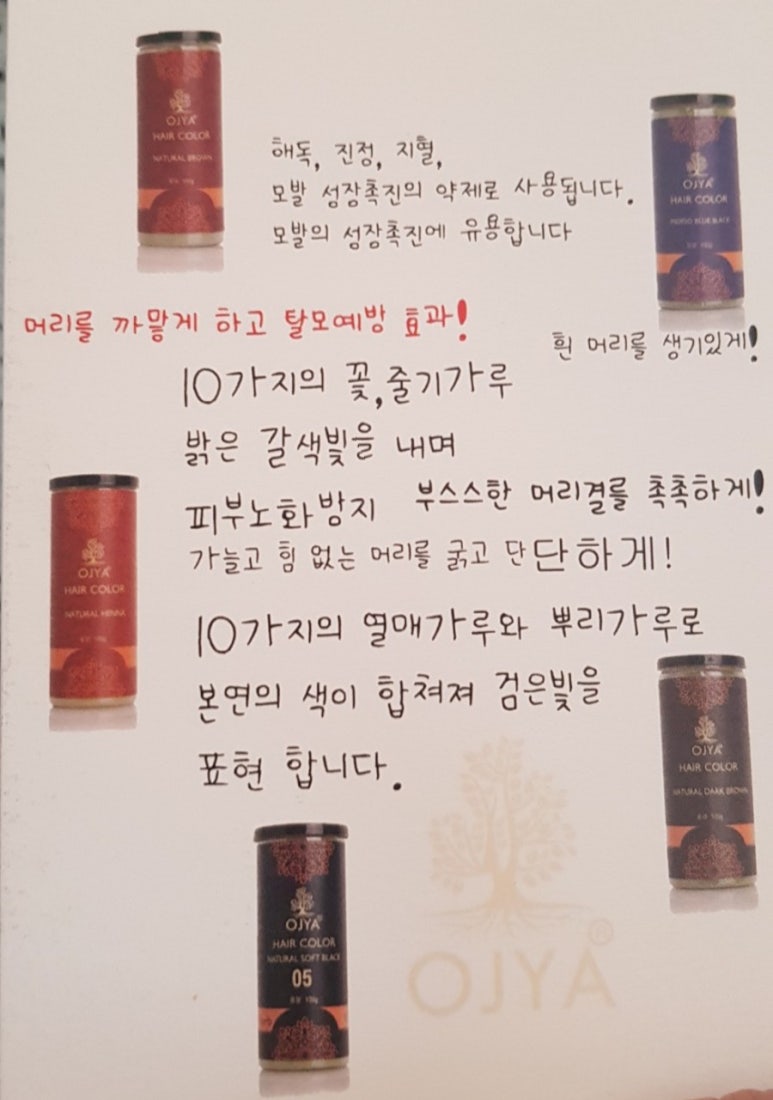 OJYA
HAIR COLOR
NATURAL BROWN
해독, 진정, 지혈,
모발 성장촉진의 약제로 사용됩니다.
모발의 성장촉진에 유용합니다
OJYA
HAIR COLOR
INDIGO BLUE BLACK
머리를 까맣게 하고 탈모예방 효과!
흰 머리를 생기있게!
10가지의 꽃,줄기가루
밝은 갈색빛을 내며
피부노화방지 부스스한 머리결를 촉촉하게!
가늘고 힘 없는 머리를 굵고 단단하게!
OJYA
HAIR COLOR
NATURAL HENNA
10가지의 열매가루와 뿌리가루로
본연의 색이 합쳐져 검은빛을
표현 합니다.
OJYA
HAIR COLOR
NATURAL DARK BROWN
OJYA
HAIR COLOR
NATURAL SOFT BLACK
05
OJYA®